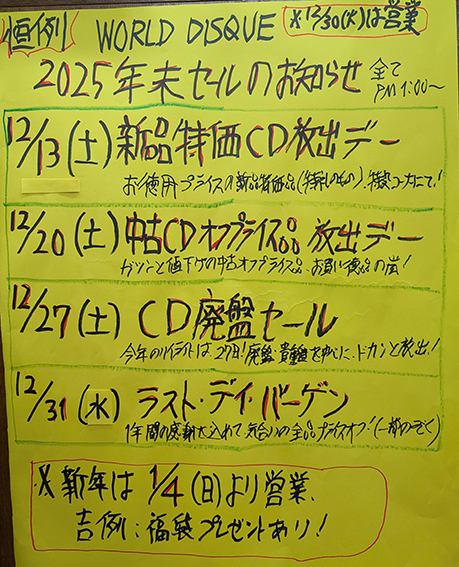 恒例 WORLD DISQUE ※12/30(火)は営業
2025年末セールのお知らせ 全て PM 1:00〜
12/13(土)新品特価CD放出デー
お徳用プライスの新品特価品(特殊いもの)、特設コーナーにて!
12/20(土)中古CDオフプライス品 放出デー
ガツーンと値下げの中古オフプライス品、お買い徳品の嵐!
12/27(土)CD廃盤セール
今年のハイライトは27日!廃盤・貴重盤を中心に、ドカンと放出!
12/31(水)ラスト・デイ・バーゲン
1年間の感謝を込めて気合いの全品プライスオフ!(一部のぞく)
※新年は1/4(日)より営業、
吉例:福袋プレゼントあり!